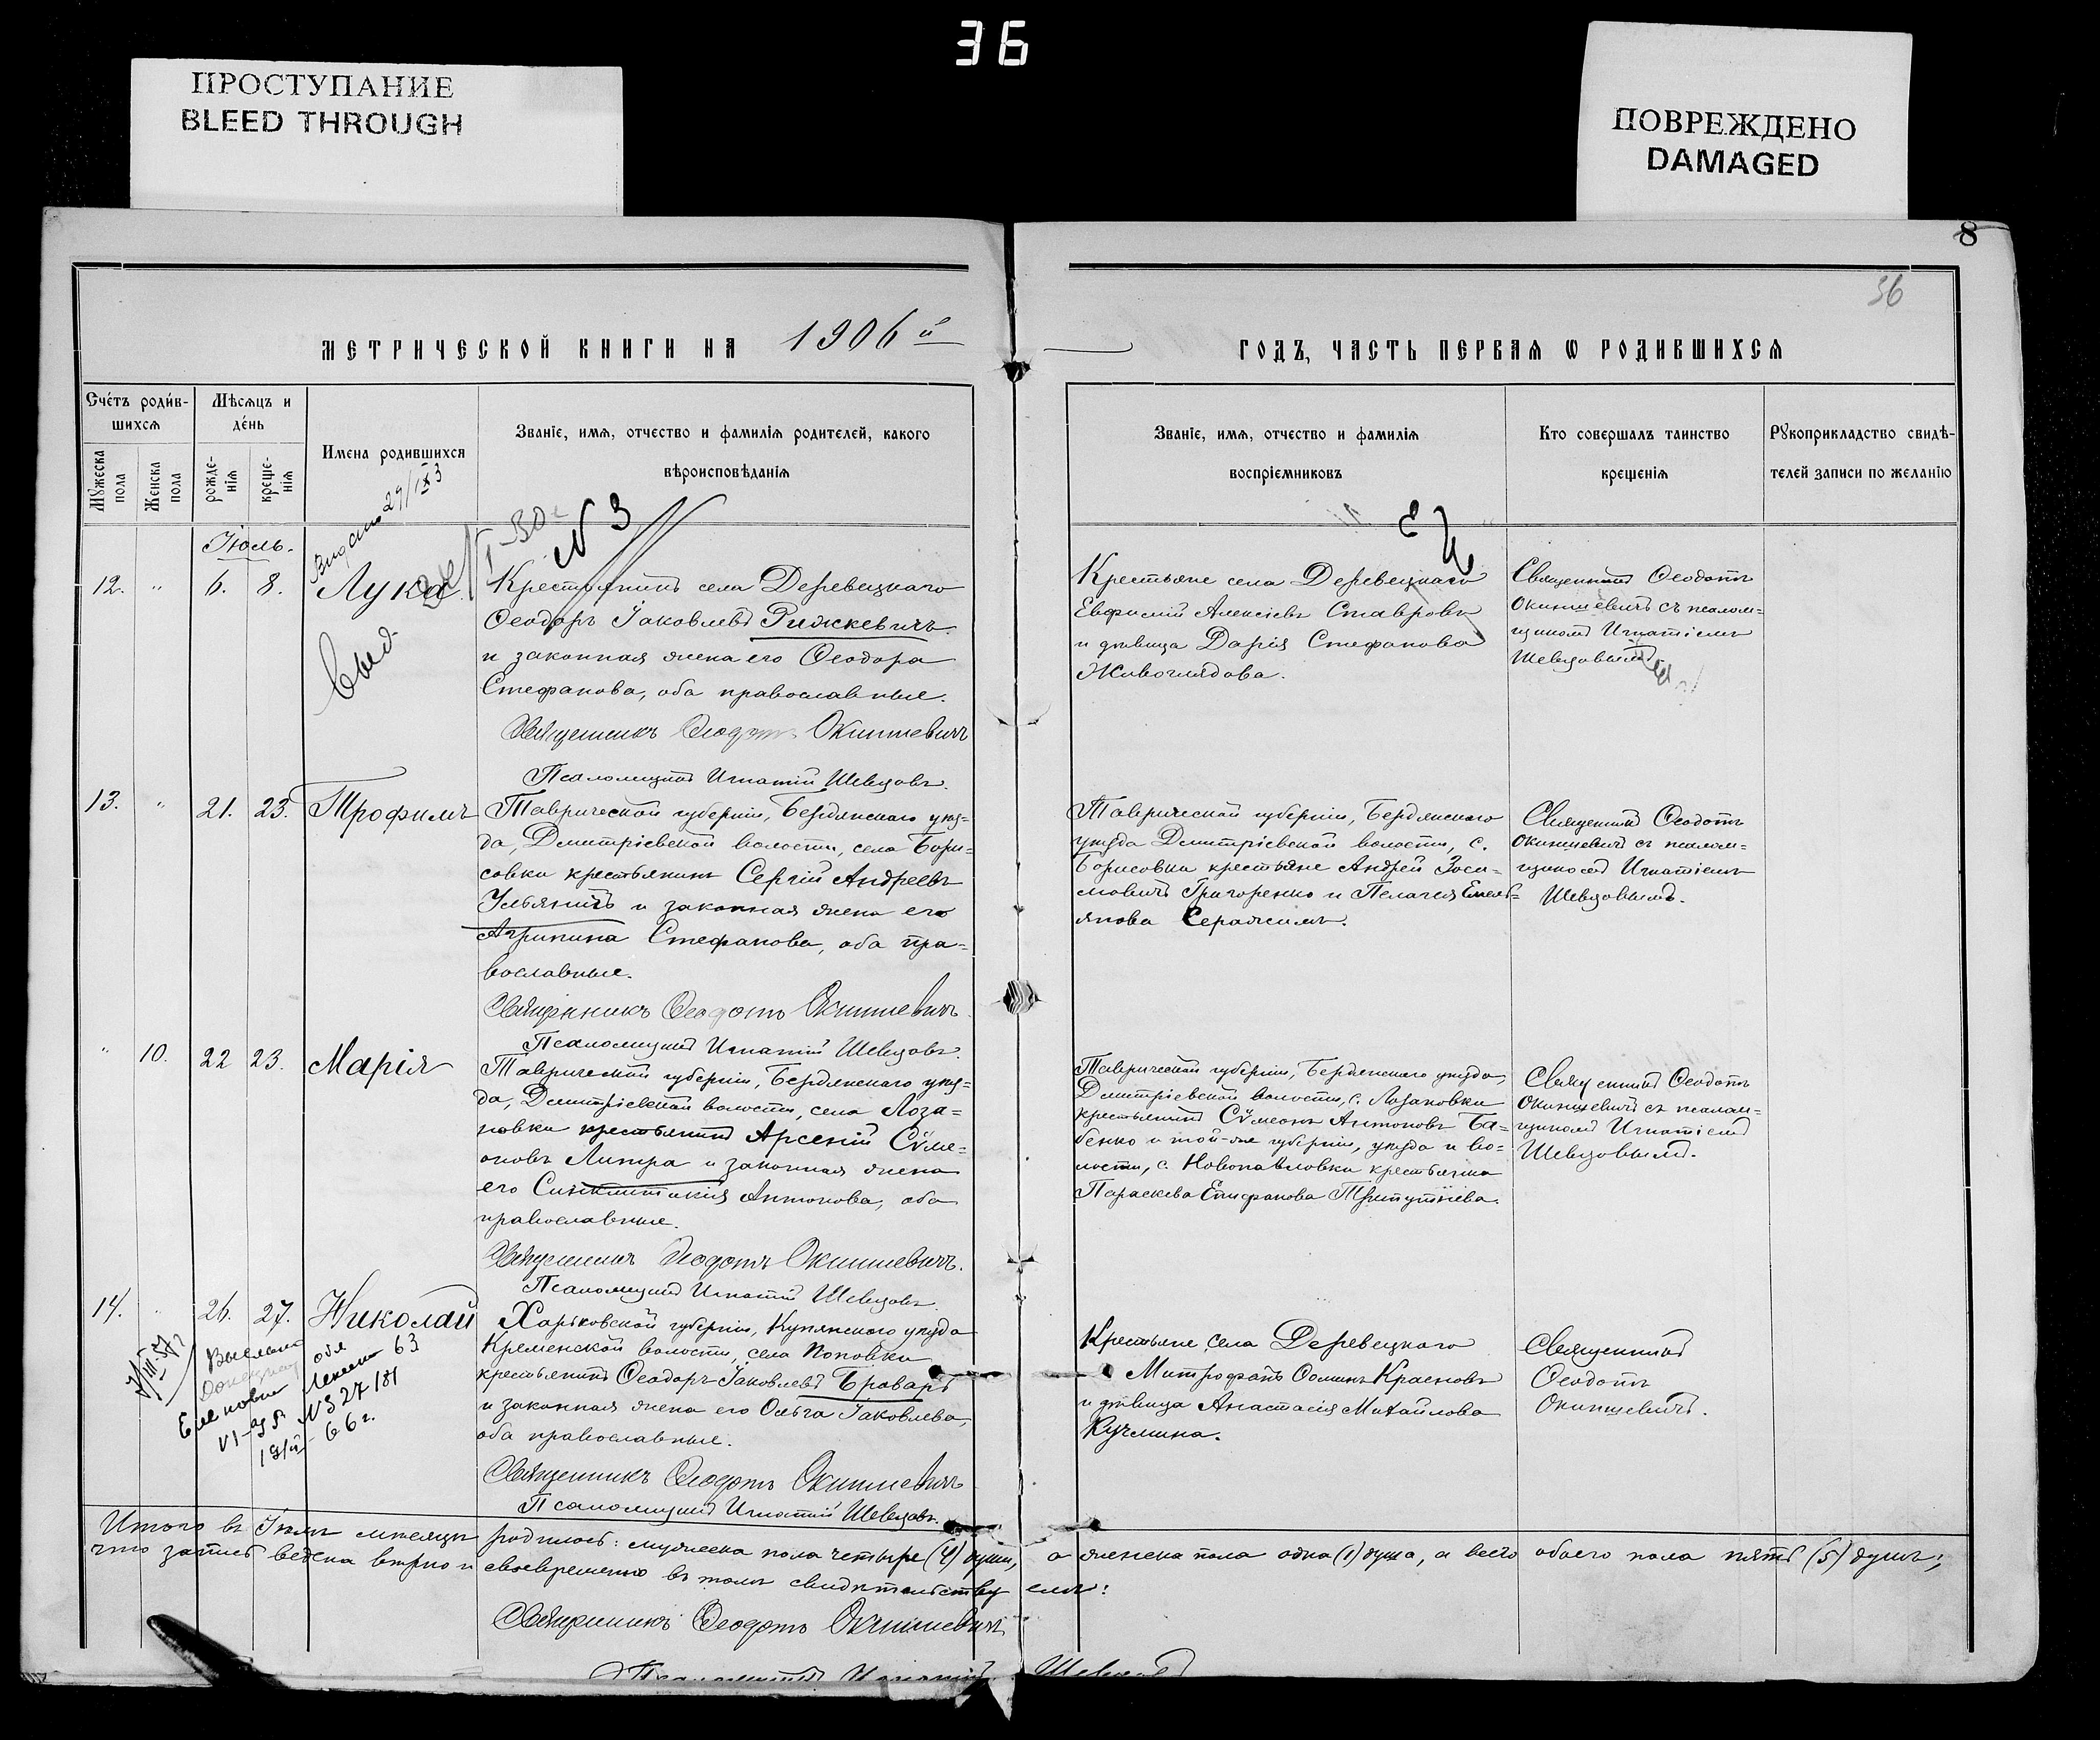 36
ПРОСТУПАНИЕ
BLEED THROUGH
ПОВРЕЖДЕНО
DAMAGED
8
36
МЕТРИЧЕСКОЙ КНИГИ НА 1906й
ГОДЪ, ЧАСТЬ ПЕРВАѦ Ѡ РОДИВШИХСѦ
Счéтъ роди́в-
шихсѧ
Мꙋжеска пола
Женска пола
Мѣсѧцъ и
дéнь
рожде-
нїѧ
креще-
нїѧ
Имена родившихсѧ
Званїе, имѧ, отчество и фамилїѧ родителей, какого
вѣроисповѣданїѧ
Званїе, имѧ, отчество и фамилїѧ
воспрїемниковъ
Кто совершалъ таинство
крещенїѧ
Рꙋкоприкладство свидѣ-
телей записи по желанїю
Видано 29/IX 3
N 3
Іюль.
12. " 6. 8. Лука
выд.
Крестьянинъ села Деревецкаго
Ѳеодоръ Іаковлевъ Рижкевичъ
и законная жена его Ѳеодора
Стефанова, оба православные.
Священникъ Ѳеодотъ Окиншевичъ
Псаломщикъ Игнатій Шевцовъ.
Крестьяне села Деревецкаго
Евфимій Алексіевъ Ставровъ
и дѣвица Дарія Стефанова
Живоглядова.
Священникъ Ѳеодотъ
Окиншевичъ съ псалом=
щикомъ Игнатіемъ
Шевцовымъ
13. " 21. 23. Трофимъ
Таврической губерніи, Бердянскаго уѣз=
да, Димитріевской волости, села Бори=
совки крестьянинъ Сергій Андреевъ
Ульяничъ и законная жена его
Агрипина Стефанова, оба пра=
вославные.
Священникъ Ѳеодотъ Окиншевичъ
Псаломщикъ Игнатій Шевцовъ.
Таврической губерніи, Бердянскаго
уѣзда Димитріевской волости, с.
Борисовки крестьяне Андрей Зоси=
мовичъ Григоренко и Пелагія Емель=
янова Серажимъ.
Священникъ Ѳеодотъ
Окиншевичъ съ псалом=
щикомъ Игнатіемъ
Шевцовымъ.
" 10. 22 23. Марія
Таврической губерніи, Бердянскаго уѣз=
да, Димитріевской волости, села Лоза=
новки крестьянинъ Арсеній Сѵме=
оновъ Литра и законная жена
его Синклитикія Антонова, оба
православные.
Священникъ Ѳеодотъ Окиншевичъ.
Псаломщикъ Игнатій Шевцовъ
Таврической губерніи, Бердянскаго уѣзда,
Димитріевской волости, с. Лозановки
крестьянинъ Сѵмеонъ Антоновъ Ба=
бенко и той-же губерніи, уѣзда и во=
лости, с. Новопавловки крестьянка
Параскева Епифанова
Священникъ Ѳеодотъ
Окиншевичъ съ псалом=
щикомъ Игнатіемъ
Шевцовымъ.
14. " 26. 27. Николай
Выслано
Донецкая обл
Еленовка Ленина 63
VI-ЯР № 27181
66 г.
Харьковской губерніи, Купянскаго уѣзда
Кременской волости, села Поповки
крестьянинъ Ѳеодоръ Іаковлевъ Броваръ
и законная жена его Ольга Іаковлева,
оба православные.
Священникъ Ѳеодотъ Окиншевичъ
Псаломщикъ Игнатій Шевцовъ.
Крестьяне села Деревецкаго
Митрофанъ Ѳоминъ Красновъ
и дѣвица Анастасія Михайлова
Кузмина.
Священникъ
Ѳеодотъ
Окиншевичъ.
Итого въ Іюлѣ мѣсяцѣ родилось: мужеска пола четыре (4) души, а женска пола одна (1) душа, а всего обоего пола пять (5) душъ;
что запись ведена вѣрно и своевременно въ томъ свидѣтельствуемъ:
Священникъ Ѳеодотъ Окиншевичъ
Псаломщикъ Игнатій Шевцовъ